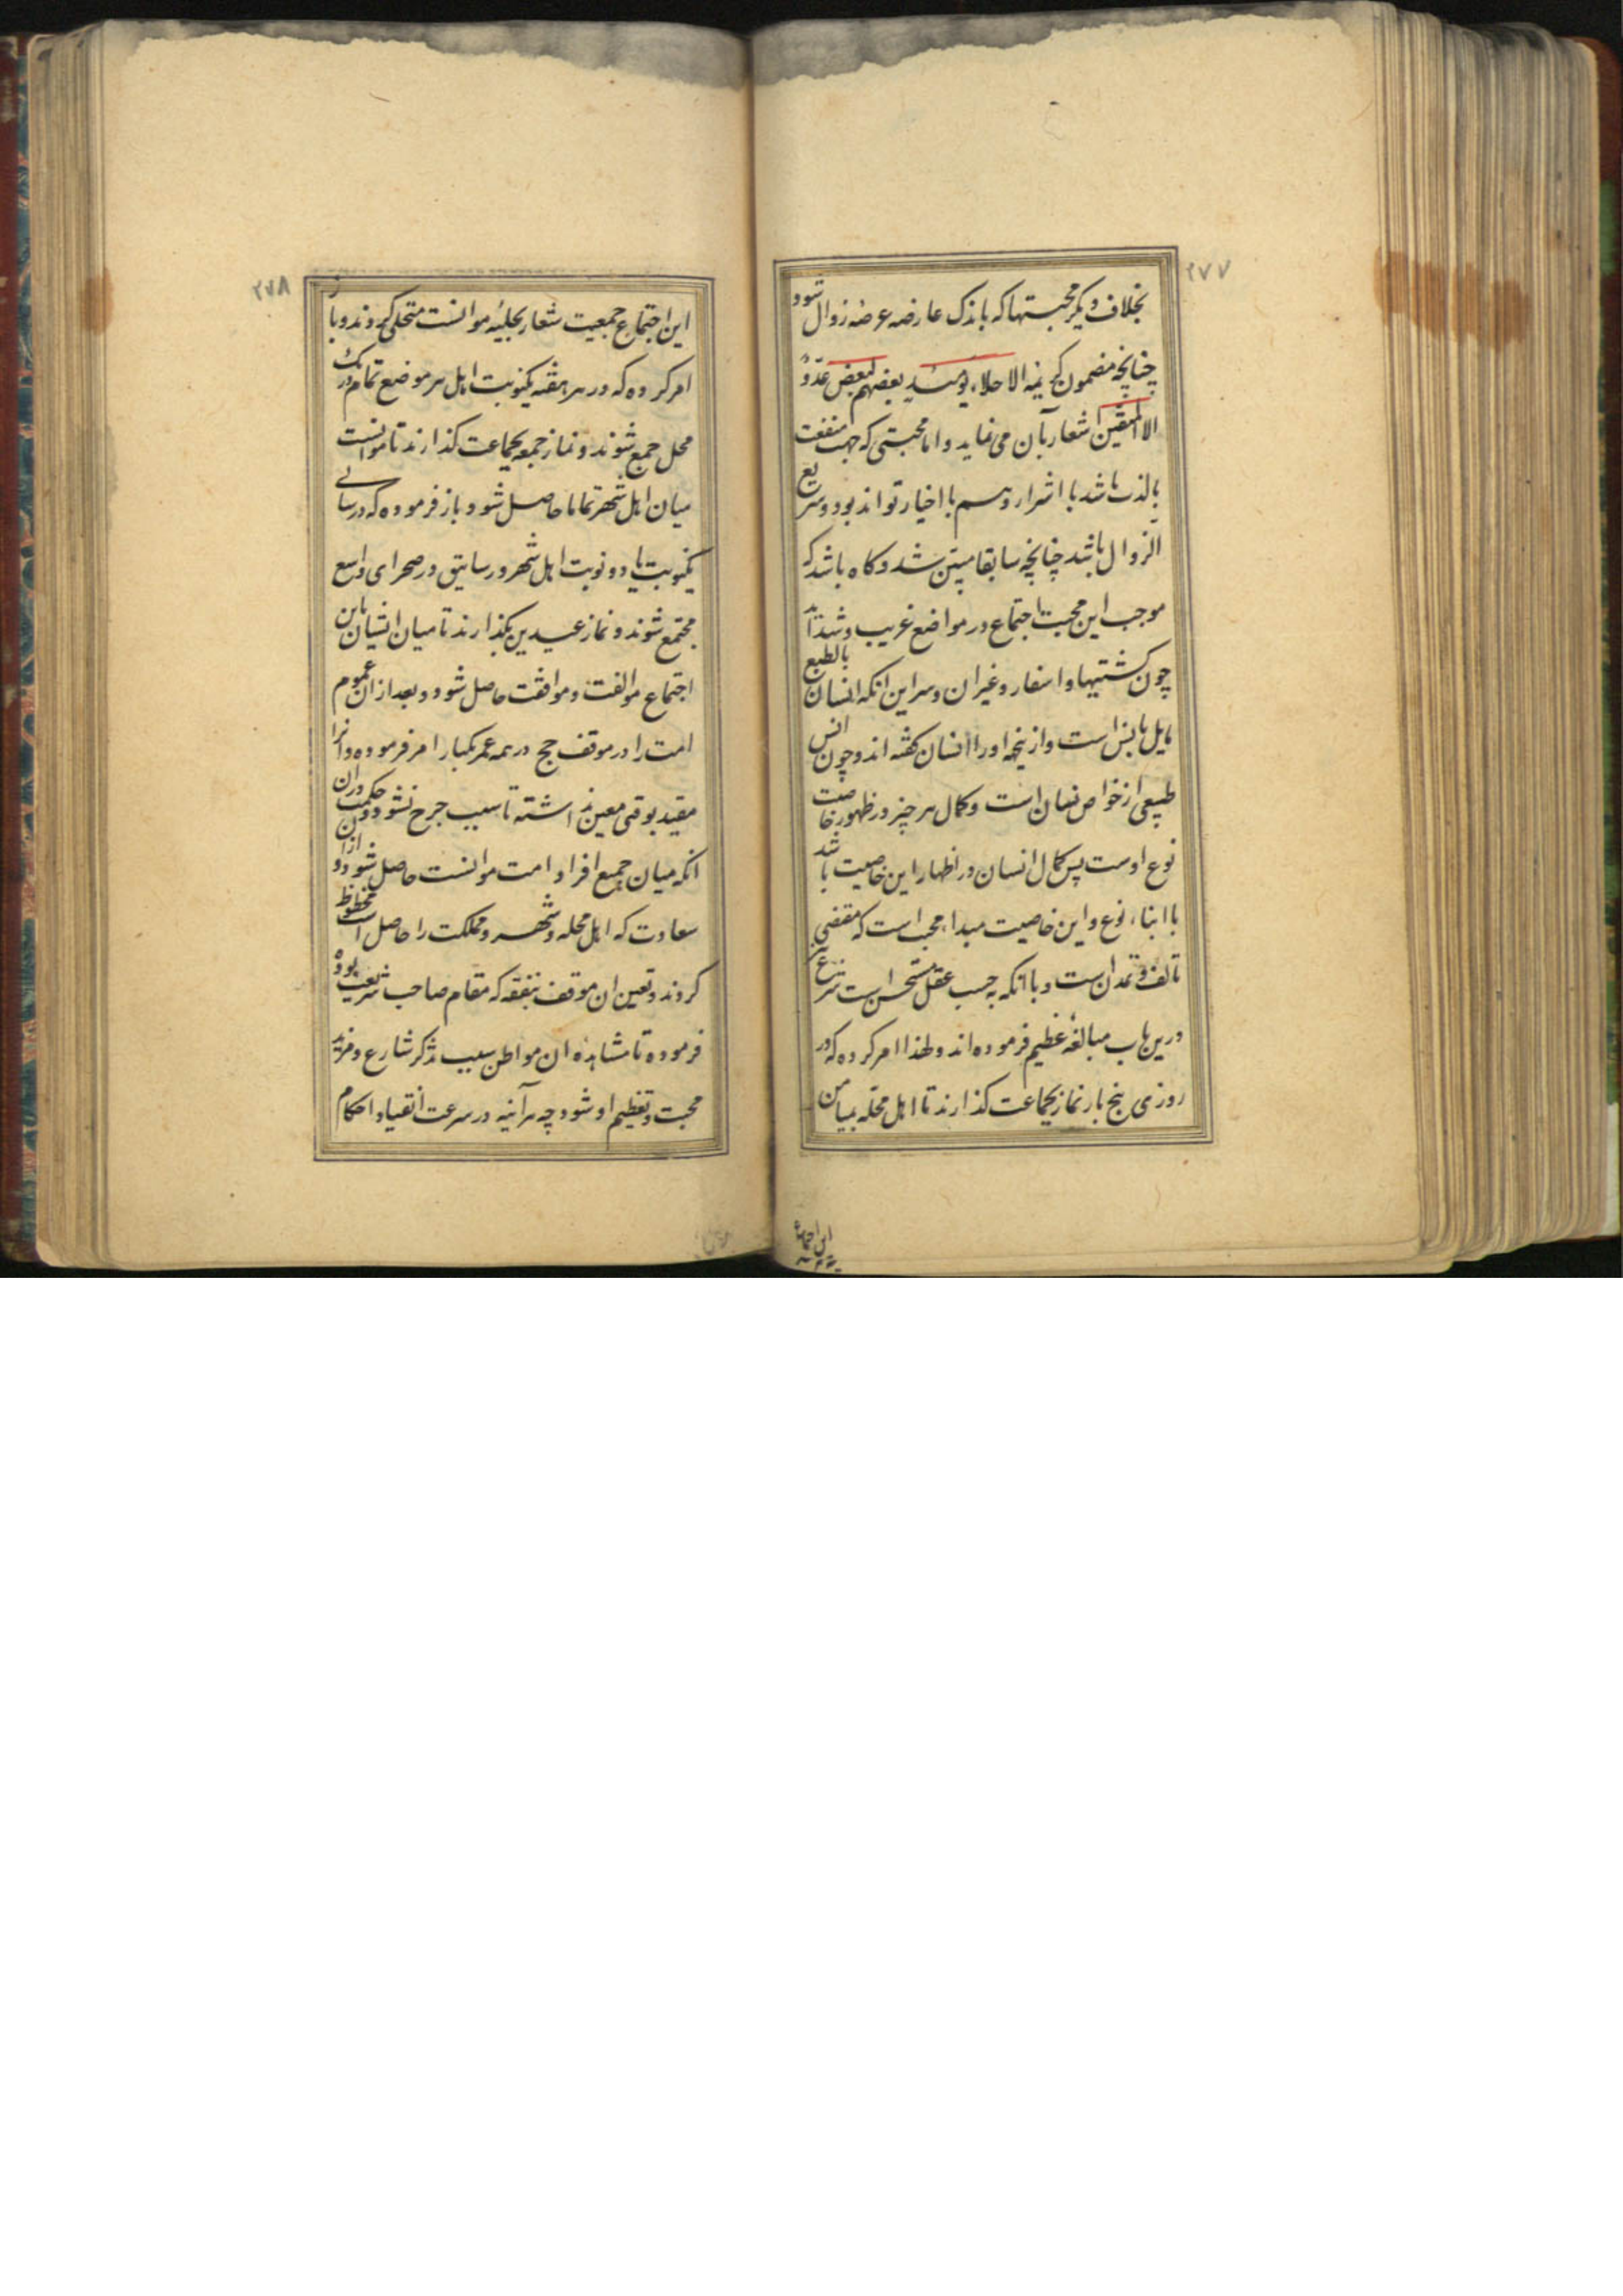 ۲۷۷
بخلاف دیگر محبتها که باندک عارضه عرضه زوال شود
چنانچه مضمون کریمه الاخلاء یومئذ بعضهم لبعض عدوٌ
الا المتقین اشعار بآن می نماید و اما محبتی که جهت منفعت
یا لذت باشد با اشرار و هم با اخیار تواند بود و سریع
الزوال باشد چنانچه سابقا مبین شد و کاه باشد که
موجب این محبت اجتماع در مواضع غریب و شداید
چون کشتیها و اسفار و غیر ان و سر این انکه انسان بالطبع
مایل بانس است و ازینجهه او را انسان کفته اند و چون انس
طبیعی از خواص انسان است و کمال هر چیز در ظهور خاصیت
نوع اوست پس کمال انسان در اظهار این خاصیت باشد
با ابناء نوع و این خاصیت مبداء محبت است که مقتضی
تالف و تمدن است و با انکه به حسب عقل مستحسن است شرع نیز
درین باب مبالغه عظیم فرموده اند و لهذا امر کرده که در
روزی پنج بار نماز بجماعت کذارند تا اهل محله بمیامن
این اجتماع
۲۷۸
این اجتماع جمعیت شعار بحلیه موانست متحلی کردند و باز
امر کرده که در هر هفته یکنوبت اهل هر موضع تمام در یک
محل جمع شوند و نماز جمعه بجماعت کذارند تا موانست
میان اهل شهر تماما حاصل شود و باز فرموده که در سالی
یکنوبت یا دو نوبت اهل شهر و رساتیق در صحرای واسع
مجتمع شوند و نماز عیدین بکذارند تا میان ایشان باین
اجتماع موالفت و موافقت حاصل شود و بعد از ان عموم
امت را در موقف حج در همه عمر یکبار امر فرموده و انرا
مقید بوقتی معین نداشته تا سبب حرج نشود و حکمت دران
انکه میان جمیع افراد امت موانست حاصل شود و ازان
سعادت که اهل محله و شهر و مملکت را حاصل است محظوظ
کردند و تعین ان موقف ببقعه که مقام صاحب شریعت بوده
فرموده تا مشاهده ان مواطن سبب تذکر شارع و مزید
محبت و تعظیم او شود و چه هر آئینه در سرعت انقیاد احکام